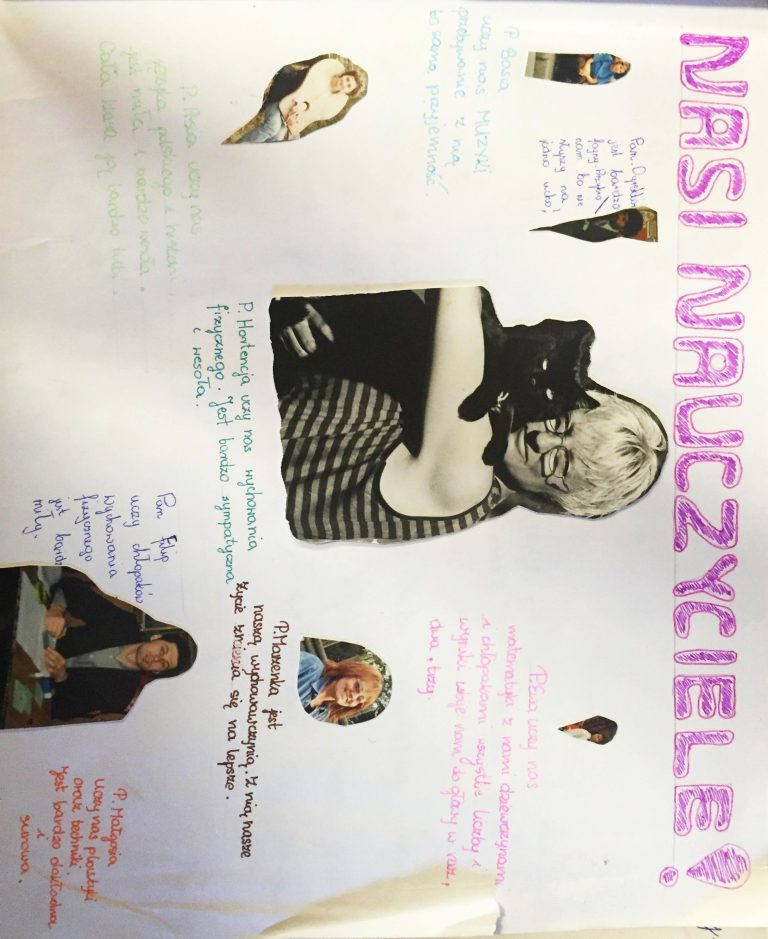 NASI NAUCZYCIELE!
Pan. Dyrektor
jest bardzo
fajny. Przykro
nam bo nie
słyszy na
jedno ucho,
P. Basia
uczy nas MUZYKI
przebywanie z nią
to sama przyjemność
P. Ewa uczy nas
matematyka z nami dziewczynami
i chłopakami wszystkie liczby i
wyniki wbije nam do głowy w raz,
dwa, trzy.
P. Marzenka jest
naszą wychowawczynią. Z nią nasze
życie zmienia się na lepsze.
P. Hortencja uczy nas wychowania
fizycznego. Jest bardzo sympatyczna
i wesoła.
P. Asia uczy nas
języka polskiego i
jest miła i bardzo
Cała klasa ją bardzo lubi.
Pan Filip
uczy chłopaków
wychowania
fizycznego
jest bardz
miły.
P. Małgosia
uczy nas plastyki
oraz techniki
jest bardzo dokładna
i
surowa.